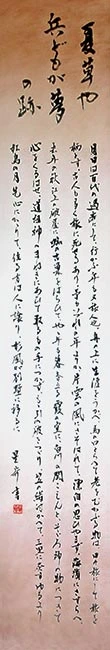 夏草や
兵どもが夢
の跡
月日は百代の過客にして行かふ年も又旅人也舟の上に生涯をうかべ馬の口とらへて老をむかふる物は日々旅にして旅を
栖とす古人も多く旅に死せるあり予もいづれの年よりか片雲の風にさそはれて漂泊の思ひやまず海浜にさすらへ
去年の秋江上の破屋に蜘の古巣をはらひてやゝ年も暮春立る霞の空に白川の関こえんとそゞろ神の物につきて
心をくるはせ道祖神のまねきにあひて取もの手につかずもゝ引の破をつゞり笠の緒付かえて三里に灸すゆるより
松島の月先心にかゝりて住る方は人に譲り杉風が別墅に移るに
書